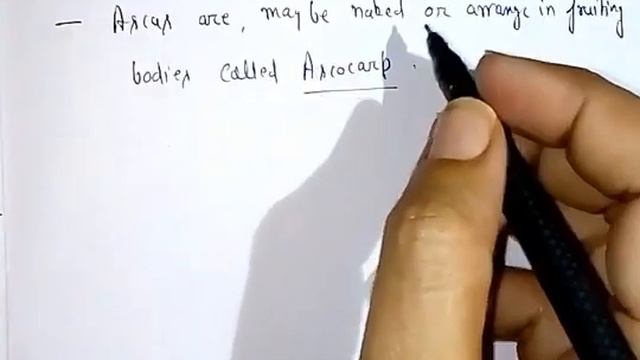 — Ascus are, may be naked or arrange in fruiting
bodies called Ascocarp.